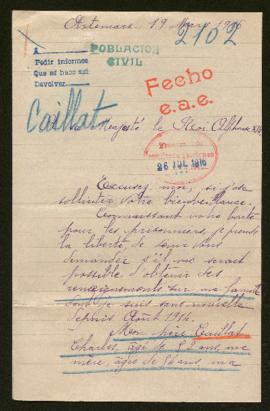 Artemare, 19 Mars 1916
2102
A
POBLACION
CIVIL
Pedir informes
Que se hace así
Devolver
Fecho
e.a.e.
Caillat
Majesté le Roi Alphonse XIII
26 JUL 1916
Excusez moi, si j'ose
solliciter votre bienveillance.
Connaissant votre bonté
pour les prisonniers, je prends
la liberté de vous
demander s'il me serait
possible d'obtenir des
renseignements sur ma famille
dont je suis sans nouvelle
depuis Août 1914.
Mon père Caillat
Charles, âgé de 52 ans, ma
mère, âgée de ans, ma